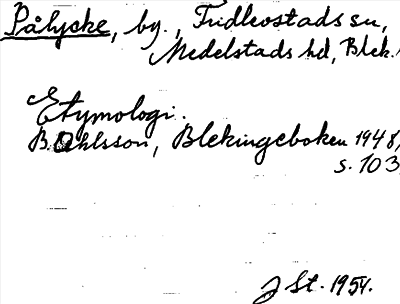 Pålycke, by., Tridleostads sn,
Medelstads hd, Blek.
Etymologi.
B. Ohlsson, Blekingeboken 1948,
s. 103
J St. 1954.